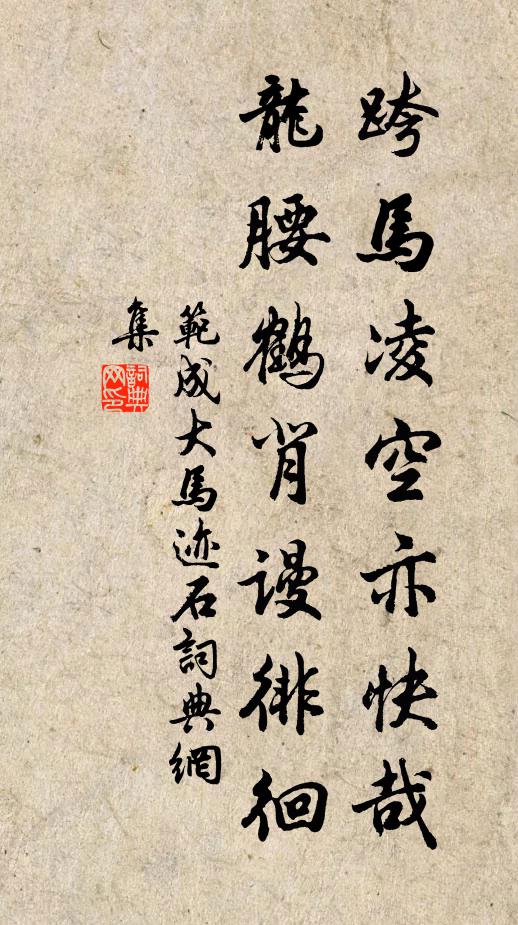 跨馬凌空亦快哉
龍腰鶴背謾徘徊
範成大馬迹石詞典網
集
詞典网印